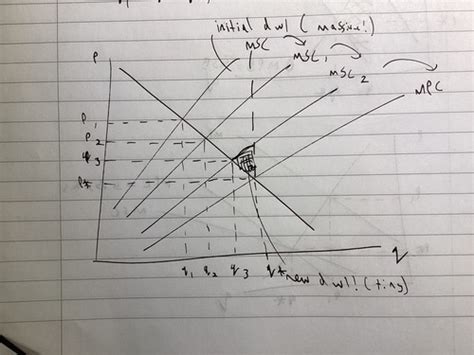 initial dwl (massive!)
MSC
MSC1
MSC2
MPC
P
P1
P2
q3
P*
q1
q2
q3
q*
q
new dwl! (tiny)